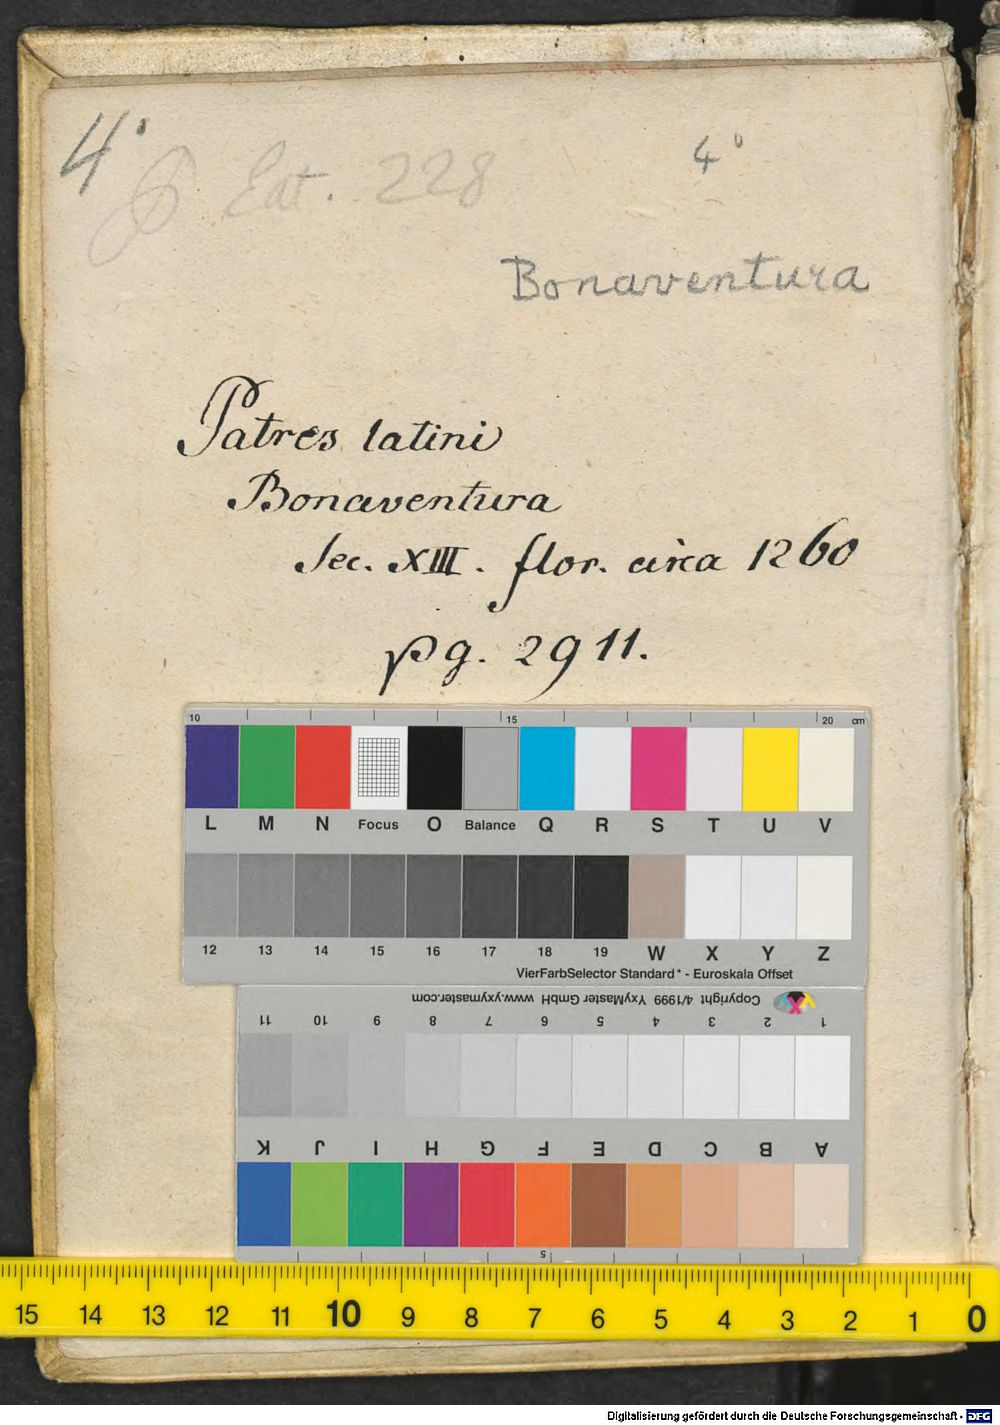 4°
P. lat. 228
4°
Bonaventura
Patres latini
Bonaventura
Sec. XIII. flor. circa 1260
pg. 2911.
10 15 20 cm
L M N Focus O Balance Q R S T U V
12 13 14 15 16 17 18 19 W X Y Z
VierFarbSelector Standard* - Euroskala Offset
Copyright 4/1999 YxyMaster GmbH www.yxymaster.com
11 10 9 8 7 6 5 4 3 2 1
K J I H G F E D C B A
5
15 14 13 12 11 10 9 8 7 6 5 4 3 2 1 0
Digitalisierung gefördert durch die Deutsche Forschungsgemeinschaft - DFG